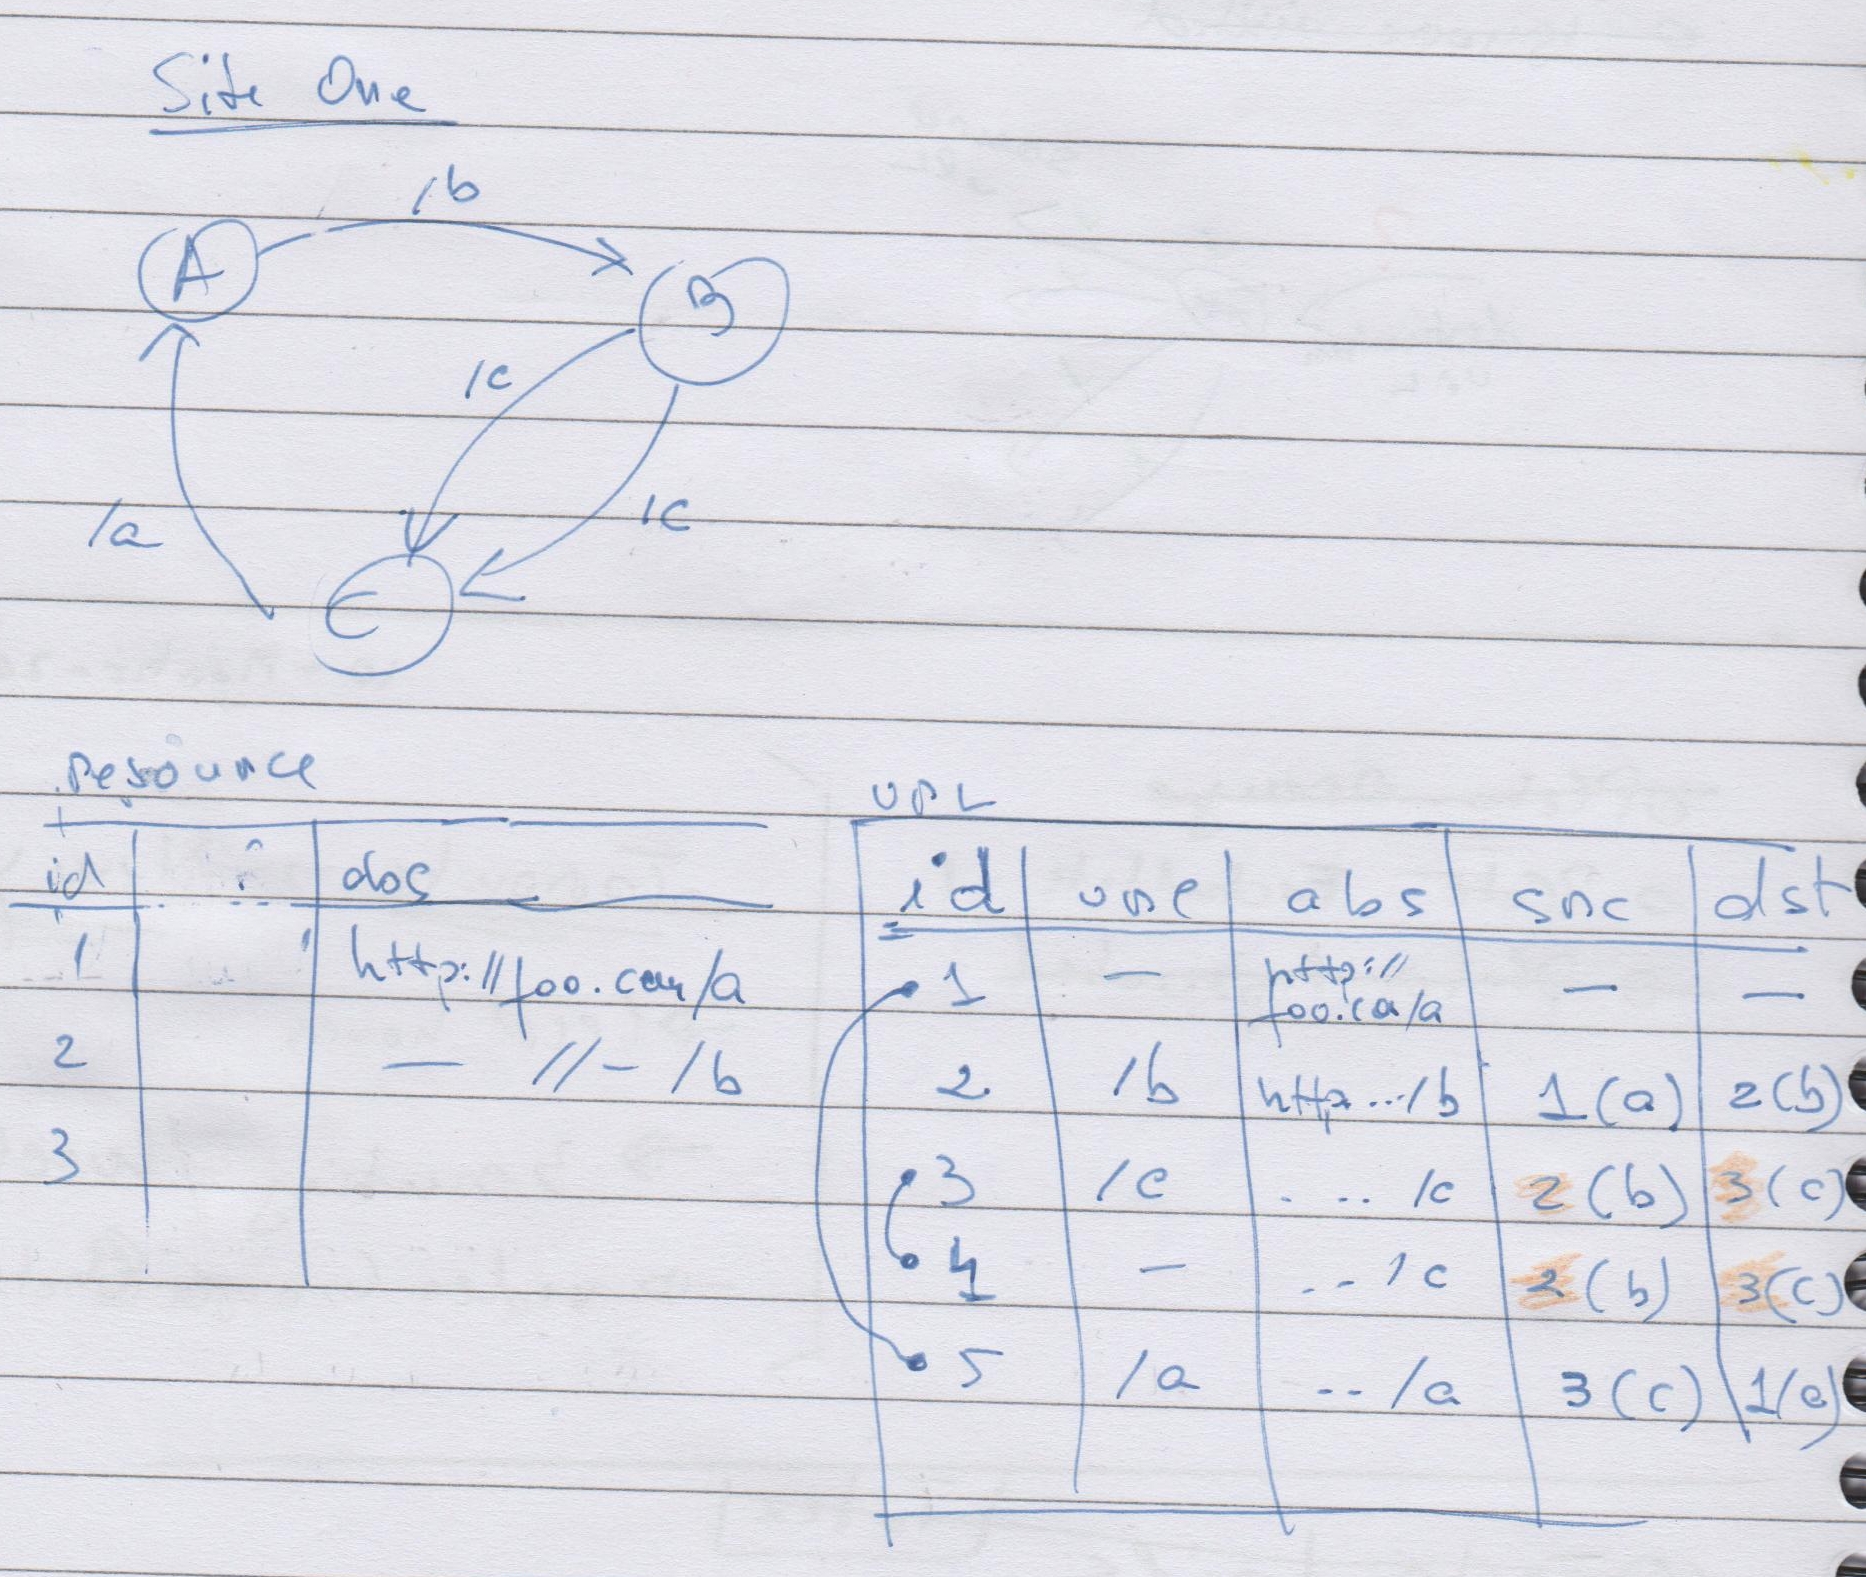 Site One
/b
A
B
/c
/c
/a
C
resource
id ? doc
1 http://foo.com/a
2 — // — /b
3
URL
id url abs src dst
1 — http:// — —
foo.com/a
2 /b http.../b 1(a) 2(b)
3 /c .... /c 2(b) 3(c)
4 — .. /c 2(b) 3(c)
5 /a .. /a 3(c) 1(a)